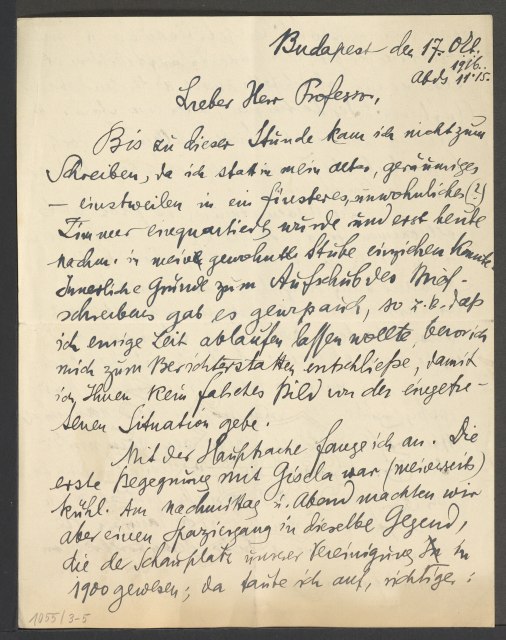 Budapest den 17. Okt.
1916.
Abds 11.15.
Lieber Herr Professor,
Bis zu dieser Stunde kam ich nicht zum
Schreiben, da ich statt in mein altes, geräumiges
– einstweilen in ein finsteres, unwohnliches (?)
Zimmer einquartiert wurde und erst heute
nachm. in meine gewohnte Stube einziehen konnte.
Innerliche Gründe zum Aufschub des
schreibens gab es gewiss auch, so z.B. daß
ich einige Zeit ablaufen lassen wollte, bevor ich
mich zum Berichterstatten entschließe, damit
ich Ihnen kein falsches Bild von der eingetre-
tenen Situation gebe.
Mit der Hauptsache fange ich an. Die
erste Begegnung mit Gisela war (meinerseits)
kühl. Am Nachmittag u. Abend machten wir
aber einen Spaziergang in dieselbe Gegend,
die der Schauplatz unserer Vereinigung in
1900 gewesen; da taute ich auf, richtiger:
1055/3-5